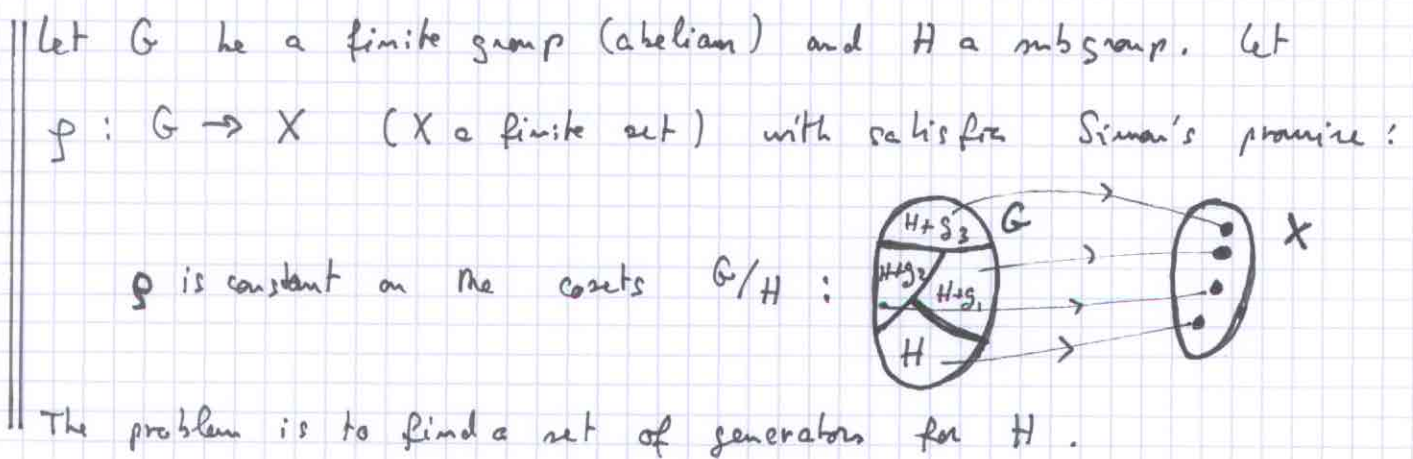 Let G be a finite group (abelian) and H a subgroup. Let
ρ : G → X (X a finite set) with satisfies Simon's promise :
H+g₃ G X
ρ is constant on the cosets G/H : H+g₂ H+g₁
H
The problem is to find a set of generators for H.